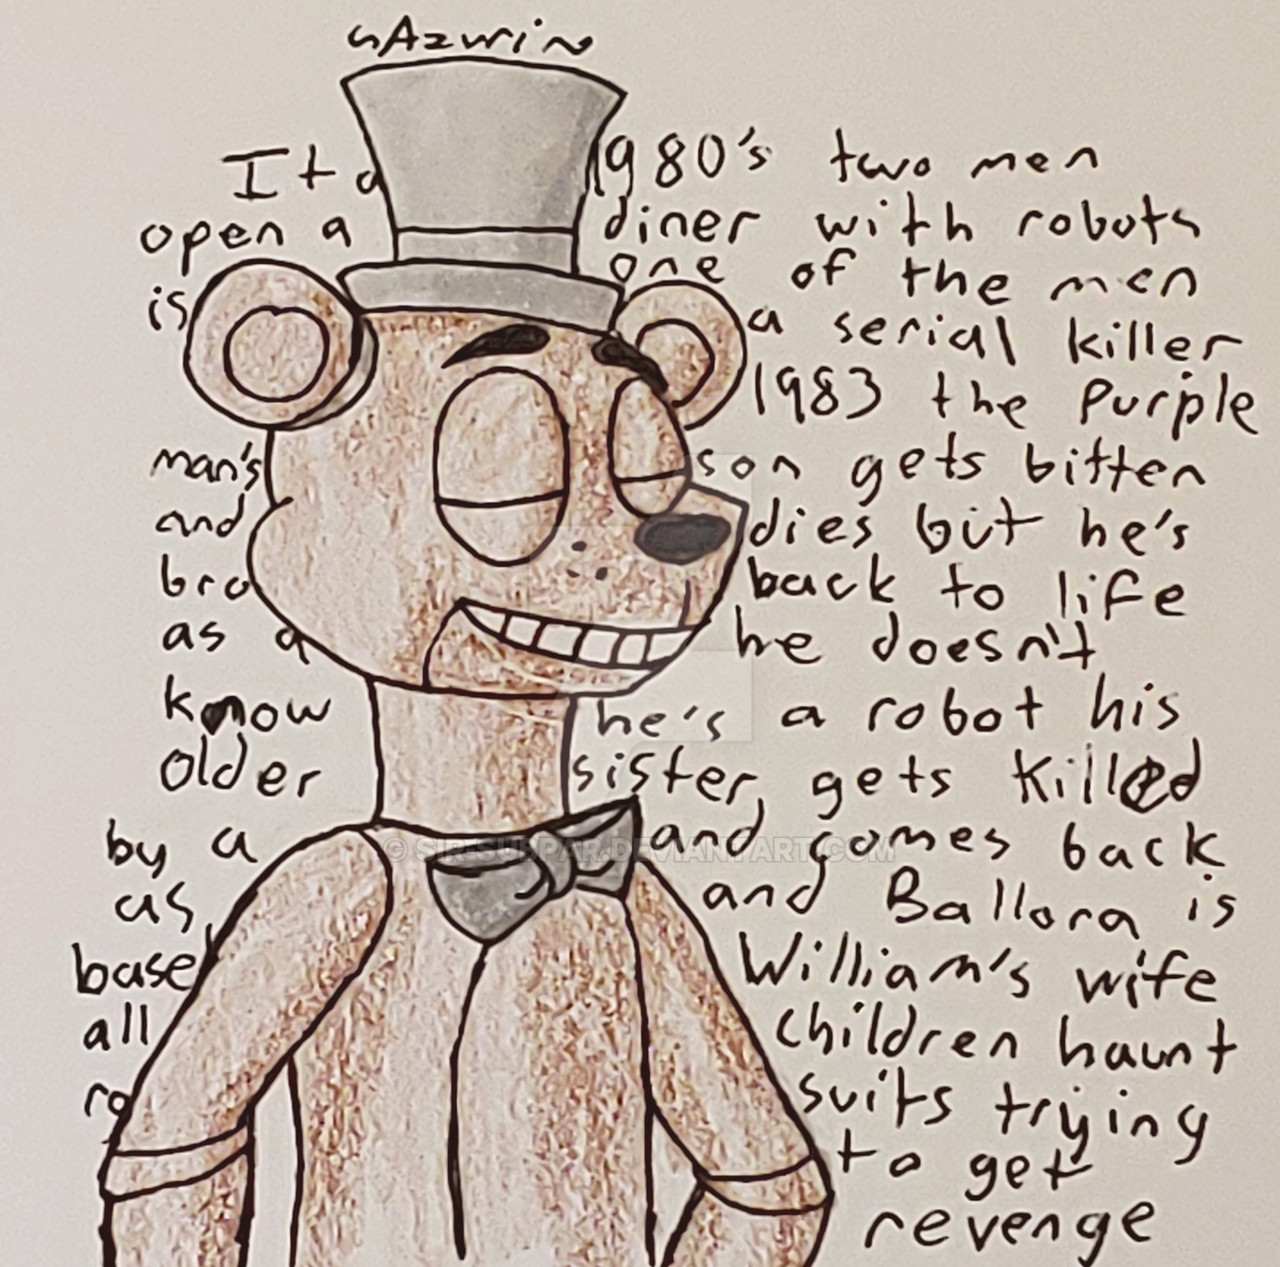 ~Azuri~
It 1980's two men
open a diner with robots
is one of the men
a serial killer
1983 the Purple
man's son gets bitten
and dies but he's
back to life
as a he doesn't
know he's a robot his
older sister gets killed
by a and comes back
as and Ballora is
base William's wife
all children haunt
suits trying
to get
revenge
© SIR-SUPPAR.DEVIANTART.COM